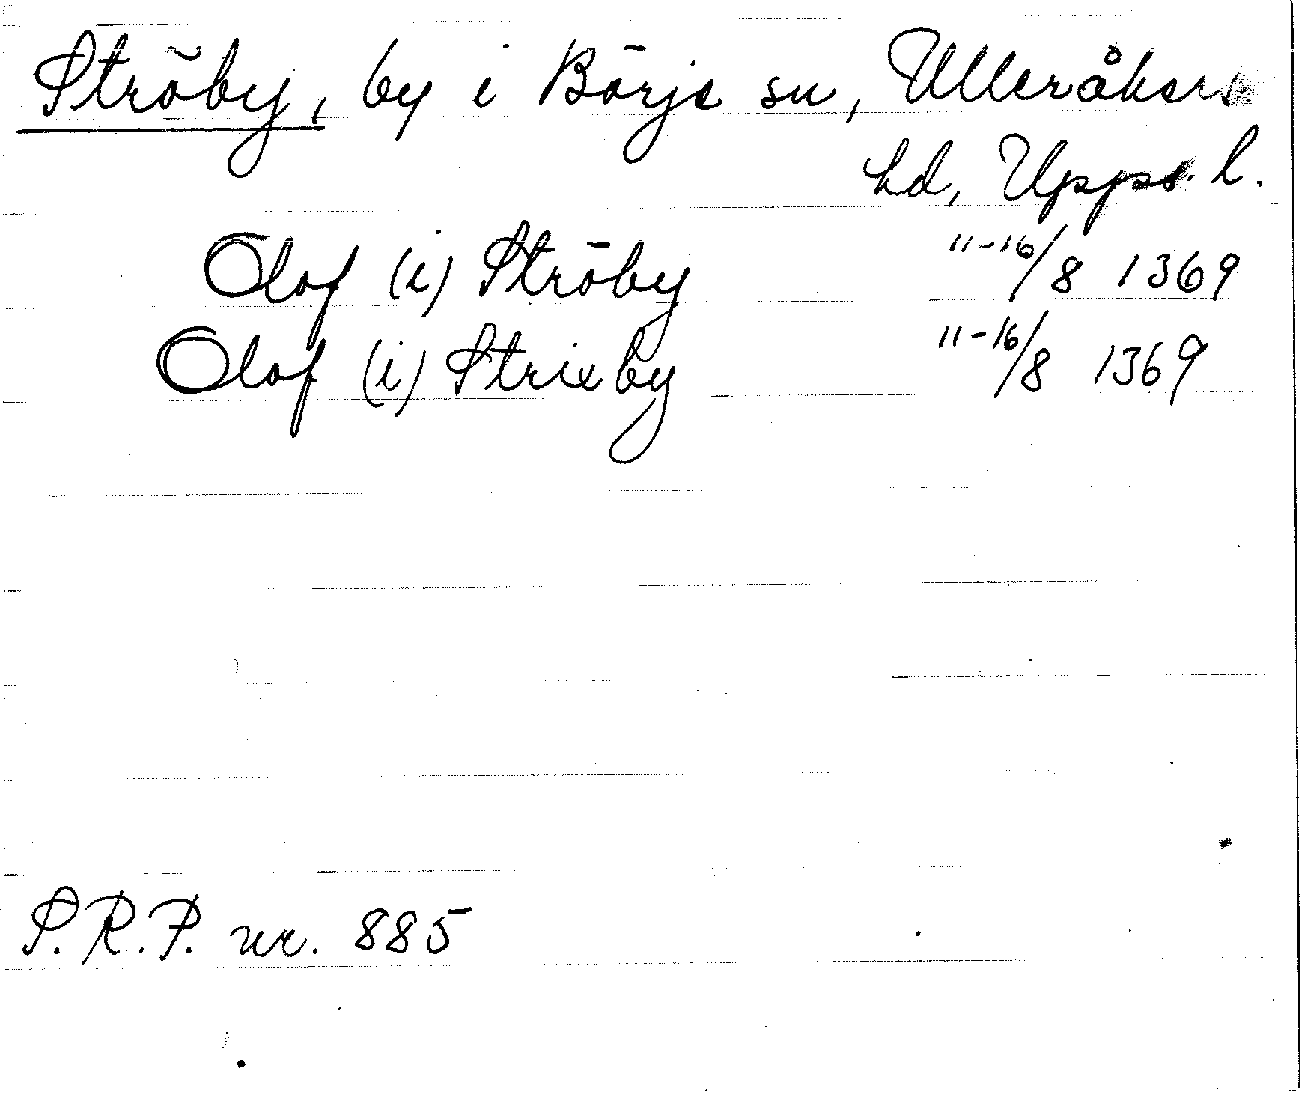 Ströby, by i Börje sn, Ulleråkers
hd, Upps. l.
Olof (i) Ströby 11-16/8 1369
Olof (i) Strixby 11-16/8 1369
S.R.P. nr. 885